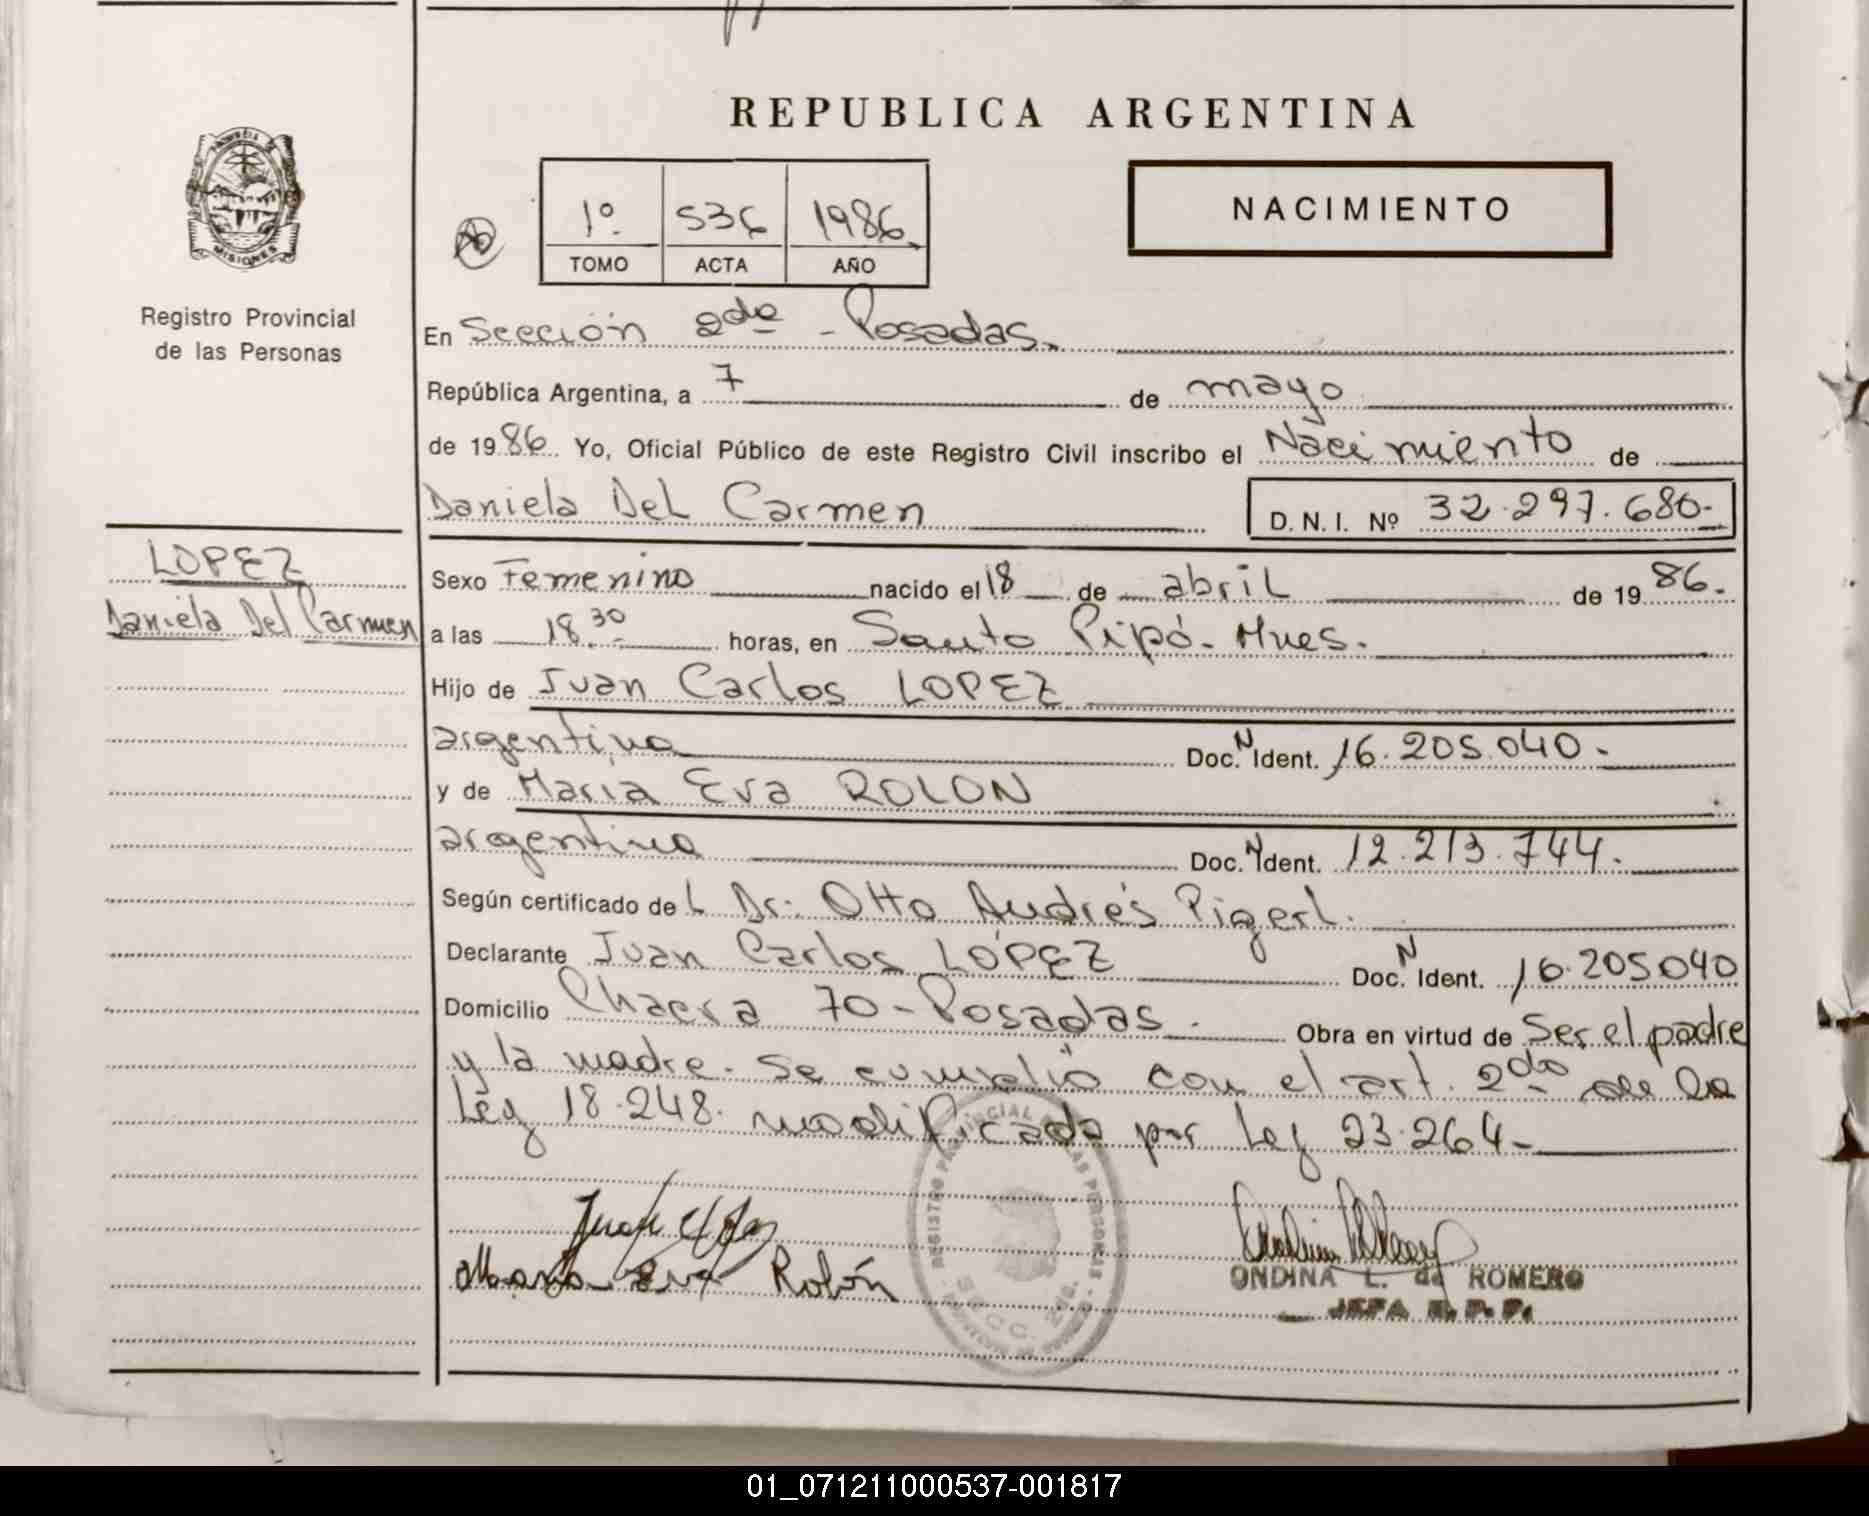 REPUBLICA ARGENTINA
PROVINCIA DE
MISIONES
Registro Provincial
de las Personas
1º 536 1986
TOMO ACTA AÑO
NACIMIENTO
En Sección 2da - Posadas.
República Argentina, a 7 de mayo
de 1986. Yo, Oficial Público de este Registro Civil inscribo el Nacimiento de
Daniela Del Carmen D. N. I. Nº 32.297.680.-
LOPEZ
Daniela Del Carmen
Sexo Femenino nacido el 18 de abril de 1986.
a las 18.30 horas, en Santo Pipó - Mnes.
Hijo de Juan Carlos LOPEZ
argentino Doc. N Ident. 16.205.040.-
y de María Eva ROLON
argentina Doc. N Ident. 12.213.744.
Según certificado del Dr. Otto Andrés Pigerl.
Declarante Juan Carlos LÓPEZ Doc. N Ident. 16.205040
Domicilio Chacra 70 - Posadas. Obra en virtud de Ser el padre
y la madre. Se cumplió con el art. 2do de la
Ley 18.248. modificado por Ley 23.264-
REGISTRO PROVINCIAL DE LAS PERSONAS
SECC. 2da.
Maria Eva Rolón
ONDINA L. de ROMERO
JEFA R. P. P.
01_071211000537-001817